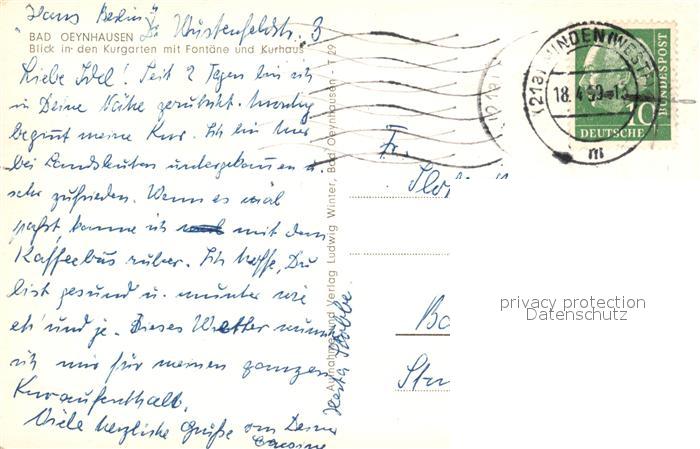 "Haus Berlin" Dr. Wüstenfeldstr. 3
BAD OEYNHAUSEN
Blick in den Kurgarten mit Fontäne und Kurhaus
Liebe Idel! Seit 2 Tagen bin ich
in Deine Nähe gerückt. Montag
beginnt meine Kur. Ich bin hier
bei Landsleuten untergekommen u.
sehr zufrieden. Wenn es mal
paßt, komme ich mit dem
Kaffeebus rüber. Ich hoffe, Du
bist gesund u. munter wie
eh' und je. Dieses Wetter wünsche
ich mir für meinen ganzen
Kuraufenthalt.
Viele herzliche Grüße von Deiner
Herta
Aufnahme und Verlag Ludwig Winter, Bad Oeynhausen - T 29
(21a) MINDEN (WESTF)
18.4.59-18
m
10
DEUTSCHE
BUNDESPOST
Fr.
Ba
privacy protection
Datenschutz